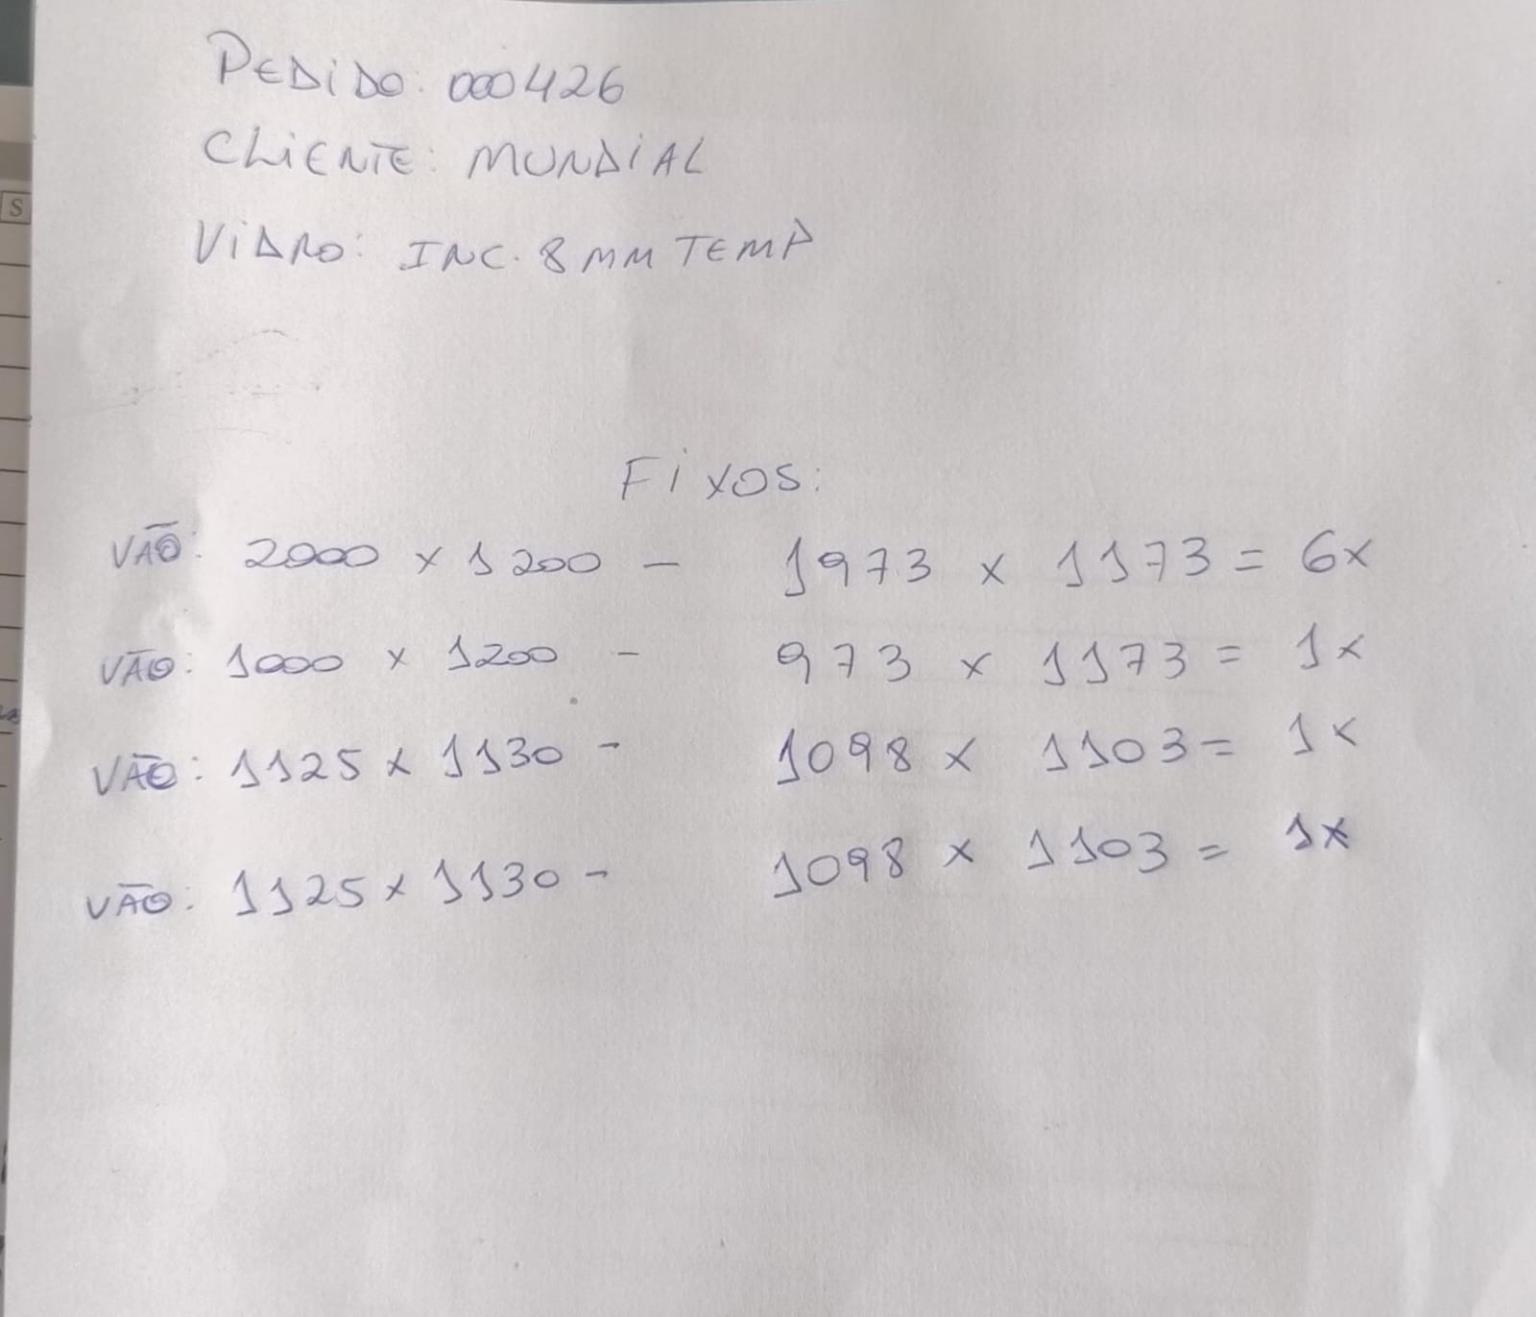 PEDIDO: 000426
CLIENTE: MUNDIAL
VIDRO: INC. 8 MM TEMP
S
FIXOS:
VÃO: 2000 x 1200 - 1973 x 1173 = 6x
VÃO: 1000 x 1200 - 973 x 1173 = 1x
VÃO: 1125 x 1130 - 1098 x 1103 = 1x
VÃO: 1125 x 1130 - 1098 x 1103 = 1x